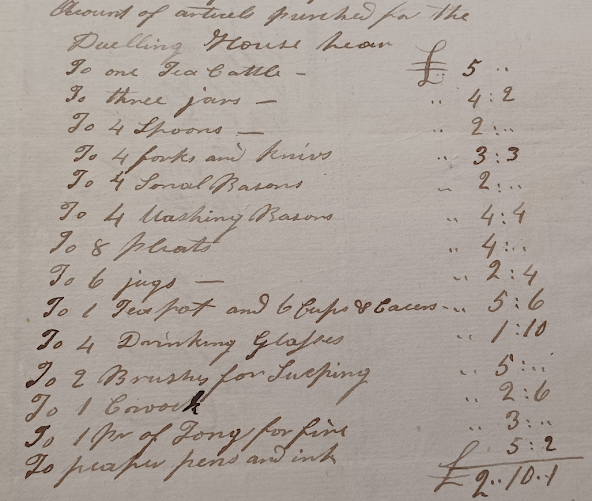 Account of articels purched for the
Duelling House hear
To one Tea Cattle - £ 5 ..
To three jars - .. 4:2
To 4 Spoons - .. 2:..
To 4 forks and knivs .. 3:3
To 4 Smal Basons .. 2:..
To 4 Washing Basons .. 4:4
To 8 pleats .. 4:..
To 6 jugs - .. 2:4
To 1 Teapot and 6 Cups & Cacers - .. 5:6
To 4 Drinking Glasses .. 1:10
To 2 Brushes for Sueping .. 5:..
To 1 .. 2:6
To 1 Pr of Tong for fire .. 3:..
To peaper pens and ink 5:2
£ 2..10..1